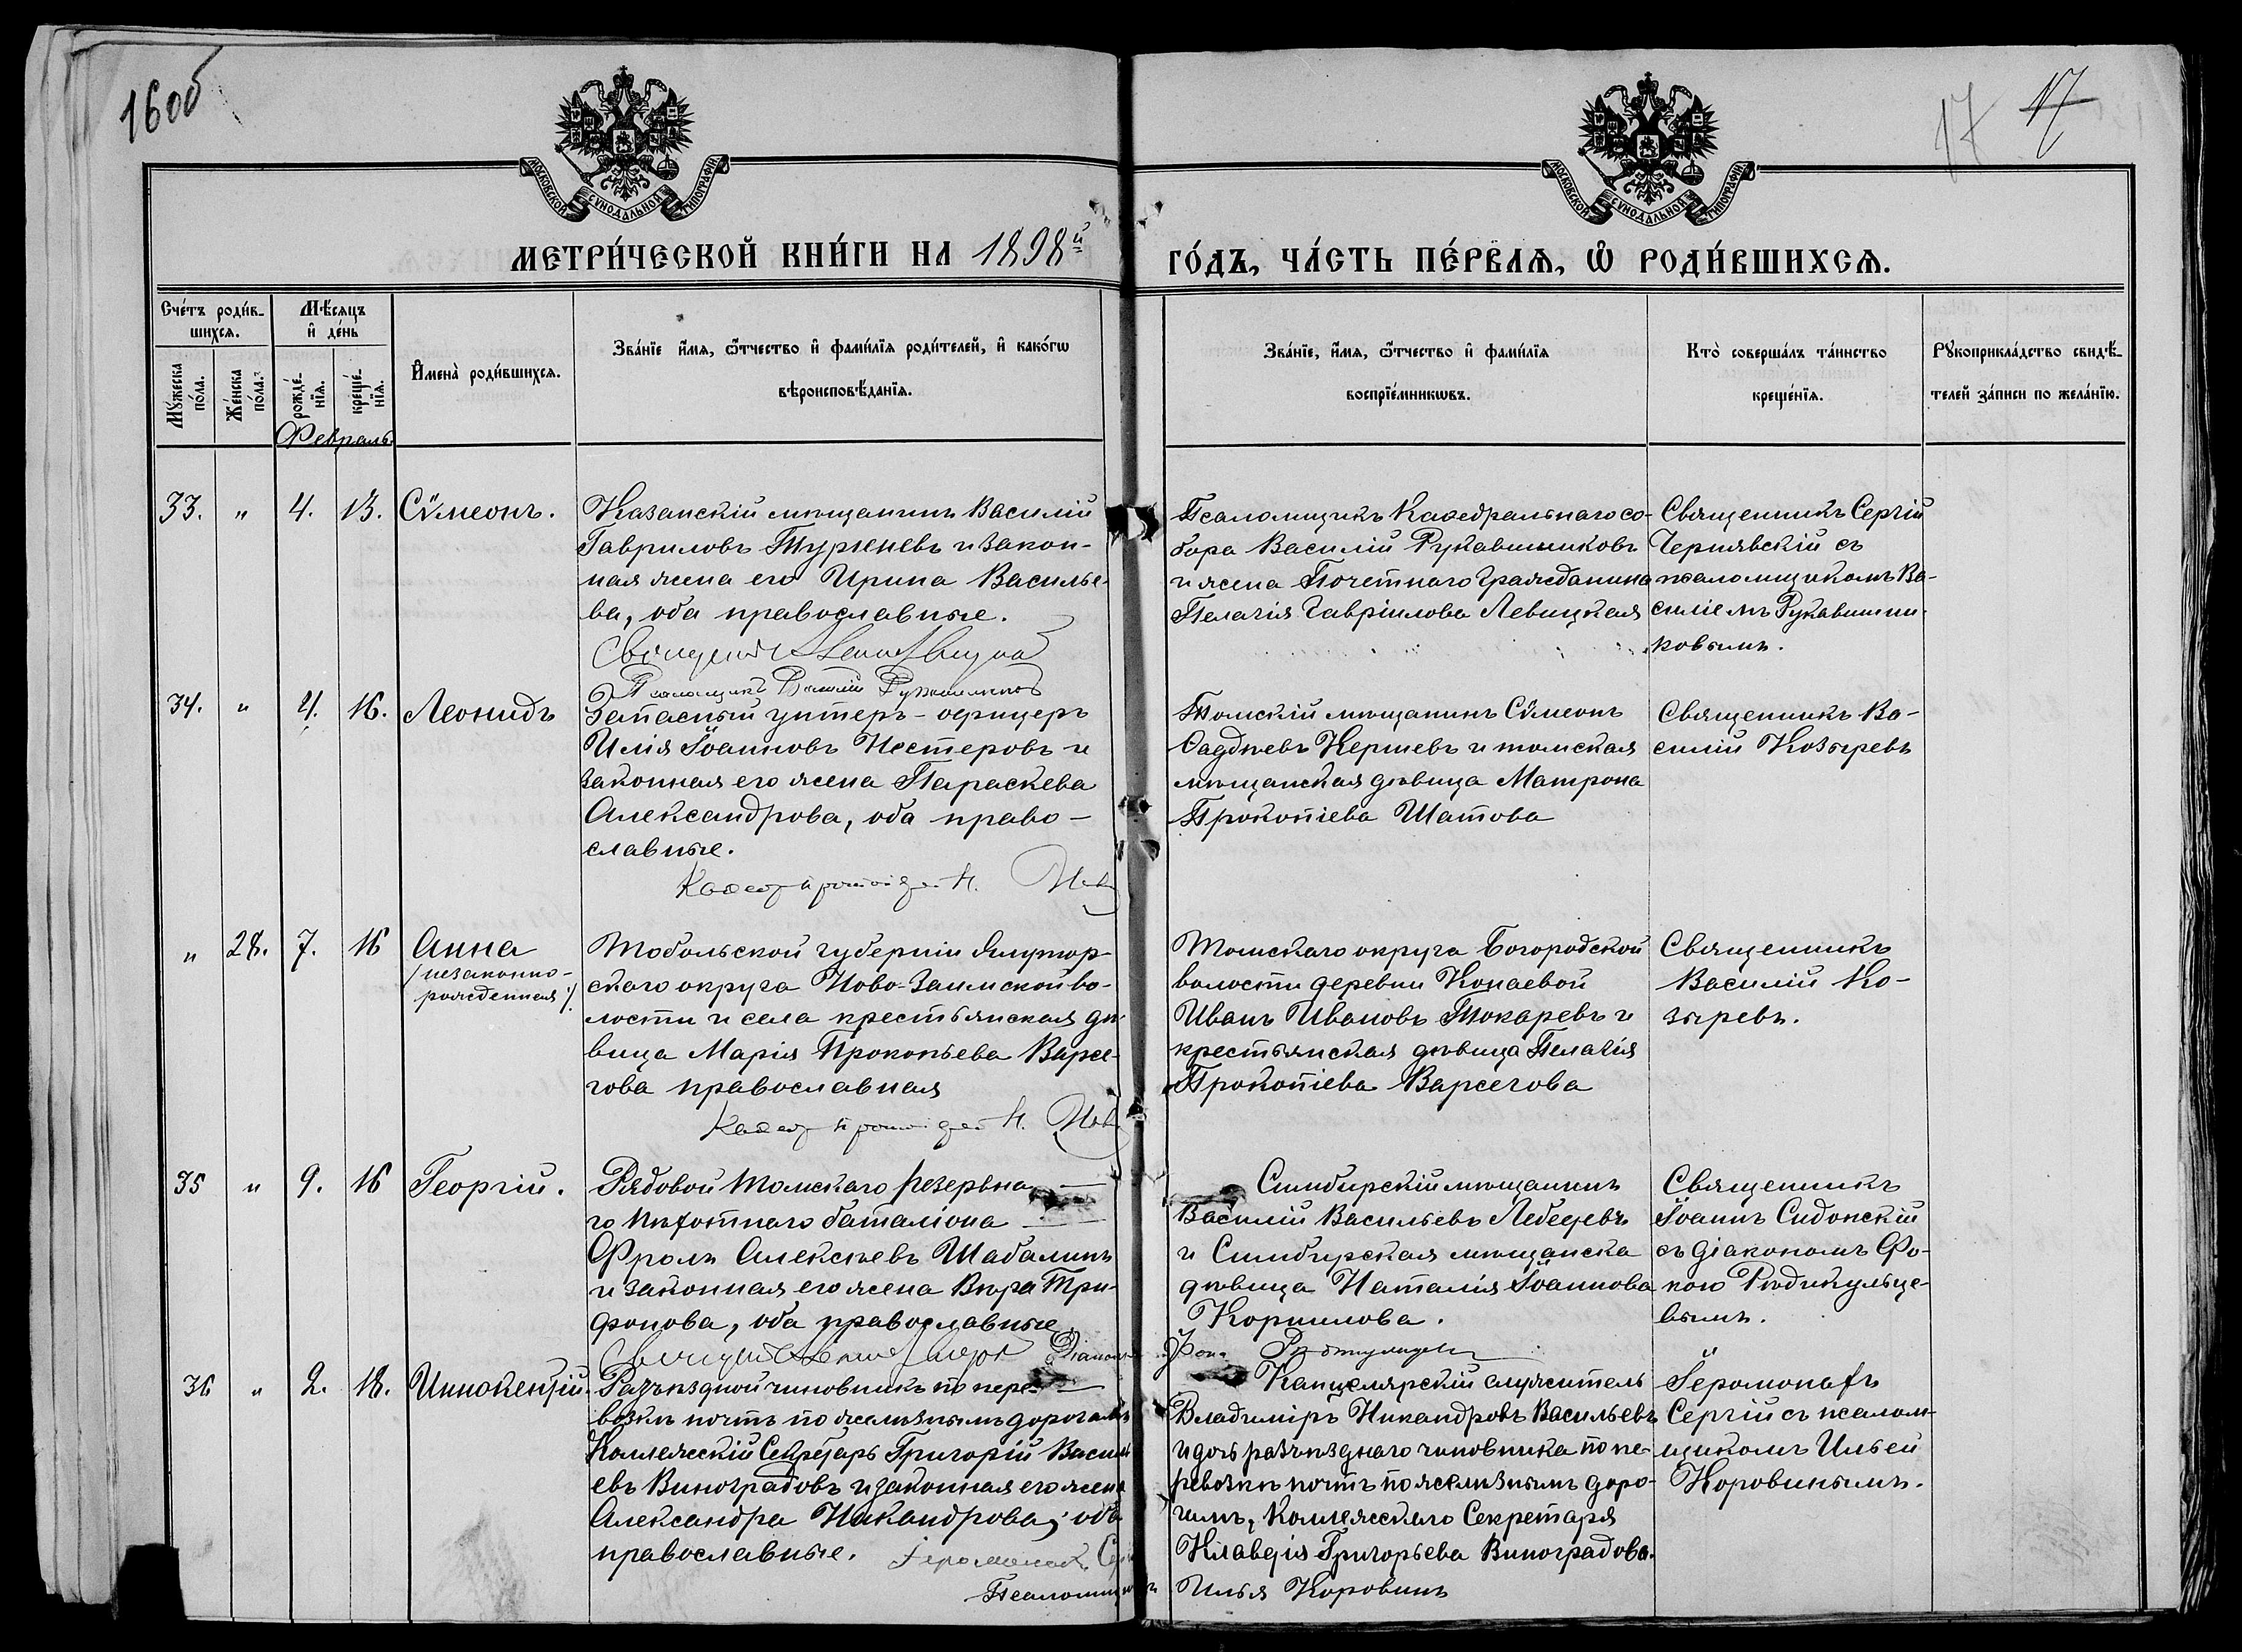 16об
17 17
МОСКОВСКОЙ СѴНОДАЛЬНОЙ ТИПОГРАФІИ
МОСКОВСКОЙ СѴНОДАЛЬНОЙ ТИПОГРАФІИ
МЕТРИ́ЧЕСКОЙ КНИ́ГИ НА 1898й
ГО́ДЪ, ЧА́СТЬ ПЕ́РВАѦ, Ѡ҆ РОДИ́ВШИХСѦ.
Сче́тъ роди́в-
шихсѧ.
Мꙋ́жеска
по́ла.
Же́нска
по́ла.
Мѣ́сѧцъ
и҆ де́нь
рожде́-
нїѧ.
креще́-
нїѧ.
Февраль
И҆мена̀ роди́вшихсѧ.
Зва́нїе и҆́мѧ, ѻ҆́тчество и҆ фами́лїѧ роди́телей, и҆ како́гѡ
вѣроисповѣ́данїѧ.
Зва́нїе, и҆́мѧ, ѻ҆́тчество и҆ фами́лїѧ
воспрїе́мникѡвъ.
Кто̀ соверша́лъ та́инство
креще́нїѧ.
Рꙋкоприкла́дство свидѣ́-
телей за́писи по жела́нїю.
33. " 4. 13. Сѵмеонъ.
Казанскій мѣщанинъ Василій
Гавриловъ Турженевъ и закон-
ная жена его Ирина Василье-
ва, оба православные.
Псаломщикъ Каѳедральнаго со-
бора Василій Рукавишниковъ
и жена Почетнаго Гражданина
Пелагія Гавріилова Левицкая
Священникъ Сергій
Чернявскій съ
псаломщикомъ Ва-
силіемъ Рукавишни-
ковымъ.
Псаломщикъ Василій Рукавишниковъ
34. " 4. 16. Леонидъ
Запасный унтеръ-офицеръ
Илія Іоанновъ Нестеровъ и
законная его жена Параскева
Александрова, оба право-
славные.
Томскій мѣщанинъ Сѵмеонъ
Ѳаддѣевъ Кершевъ и томская
мѣщанская дѣвица Матрона
Прокопіева Шатова
Священникъ Ва-
силій Козыревъ
" 28. 7. 16 Анна
/незаконно-
рожденная/.
Тобольской губерніи Ялутор-
скаго округа Ново-Заимской во-
лости и села крестьянская дѣ-
вица Марія Прокопьева Варсе-
гова православная
Томскаго округа Богородской
волости деревни Конаевой
Иванъ Ивановъ Токаревъ и
крестьянская дѣвица Пелагія
Прокопіева Варсегова
Священникъ
Василій Ко-
зыревъ.
35 " 9. 16 Георгій.
Рядовой Томскаго резервна-
го пѣхотнаго баталіона
Фролъ Алексѣевъ Шабалинъ
и законная его жена Вѣра Три-
фонова, оба православные.
Симбирскій мѣщанинъ
Василій Васильевъ Лебедевъ
и Симбирская мѣщанска
дѣвица Наталія Іоаннова
Корнилова.
Священникъ
Іоаннъ Сидонскій
съ діакономъ Фо-
кою Рѣдикульце-
вымъ.
36 " 2. 18. Иннокентій.
Разъѣздной чиновникъ по пере-
возкѣ почтъ по желѣзнымъ дорогамъ
Коллежскій Секретарь Григорій Васил
евъ Виноградовъ и законная его жена
Александра Никандрова, оба
православные.
Канцелярскій служитель
Владиміръ Никандровъ Васильевъ
и дочь разъѣзднаго чиновника по пе-
ревозкѣ почтъ по желѣзнымъ доро-
гамъ, Коллежскаго Секретаря
Клавдія Григорьева Виноградова.
Іеромонахъ
Сергій съ псалом-
щикомъ Ильей
Коровинымъ.
Іеромонахъ
Псаломщикъ Илья Коровинъ